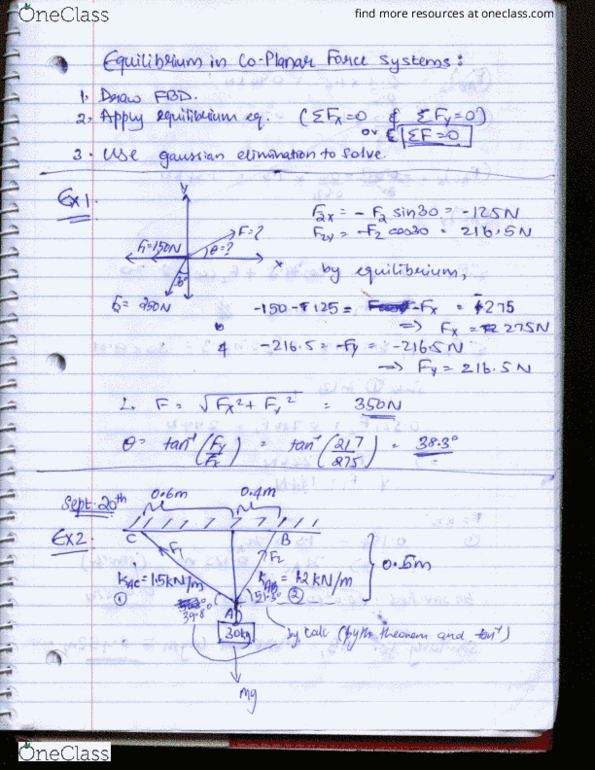 OneClass
find more resources at oneclass.com
Equilibrium in Co-Planar Force Systems:
1. Draw FBD.
2. Apply equilibrium eq. (ΣFx=0 & ΣFy=0)
or ΣF=0
3. Use gaussian elimination to solve.
Ex 1.
y
F=?
θ=?
x
F1=150N
30°
F2=250N
F2x = -F2 sin30 = -125N
F2y = -F2 cos30 = 216.5N
by equilibrium,
-150-125 = -Fx = 275
=> Fx = 275N
& -216.5 = -Fy = -216.5N
=> Fy = 216.5N
F = √Fx²+Fy² = 350N
θ = tan⁻¹(Fy/Fx) = tan⁻¹(217/275) = 38.3°
Sept. 20th
0.6m 0.4m
Ex 2.
C B
F1 F2
0.5m
KAC=1.5kN/m KAB=1.2kN/m
① ②
39.8° 51.3°
A
30kg
by calc (pyth theorem and tan⁻¹)
mg
OneClass
OneClass